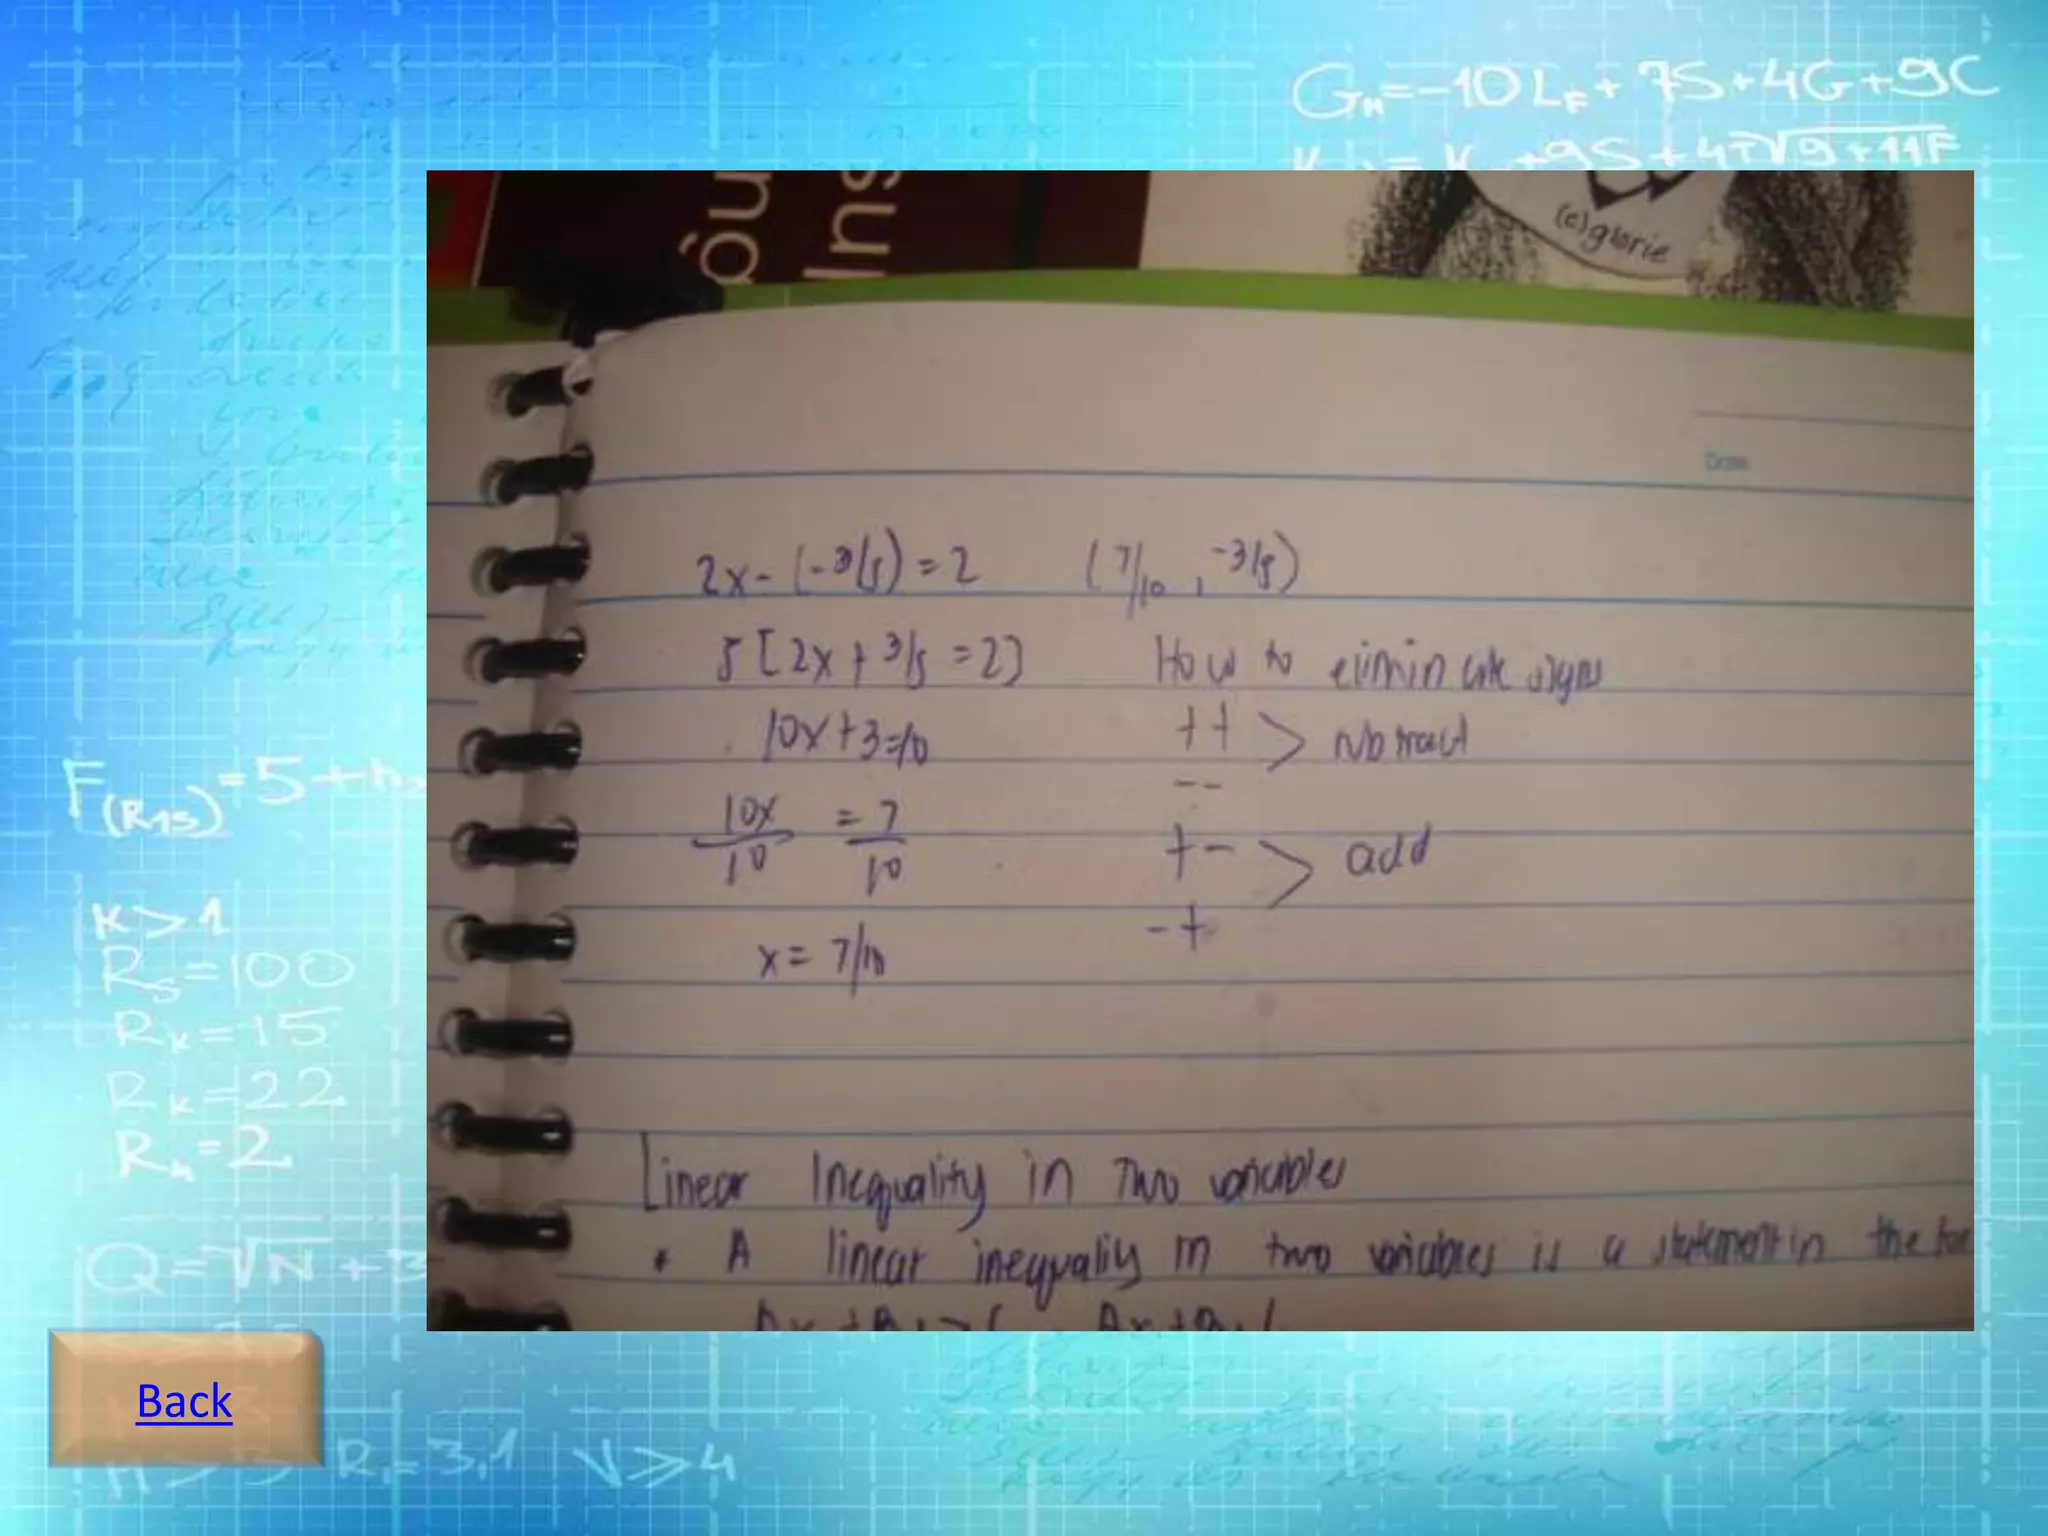 G_H=-10L_F+7S+4G+9C
+9S+4T√9+11F
ôu
Ins
(c)glorie
Date
2x-(-3/5)=2 (7/10, -3/5)
5[2x+3/5=2] How to eliminate signs
10x+3=10 ++ > subtract
--
10x/10 = 7/10 +- > add
-+
x=7/10
Linear Inequality in Two variables
* A linear inequality in two variables is a statement in the for
F(R15)=5+h
K>1
R_S=100
R_K=15
R_K=22
R_h=2
Q=7√N+3
Back
R_F=3,1 V≥4